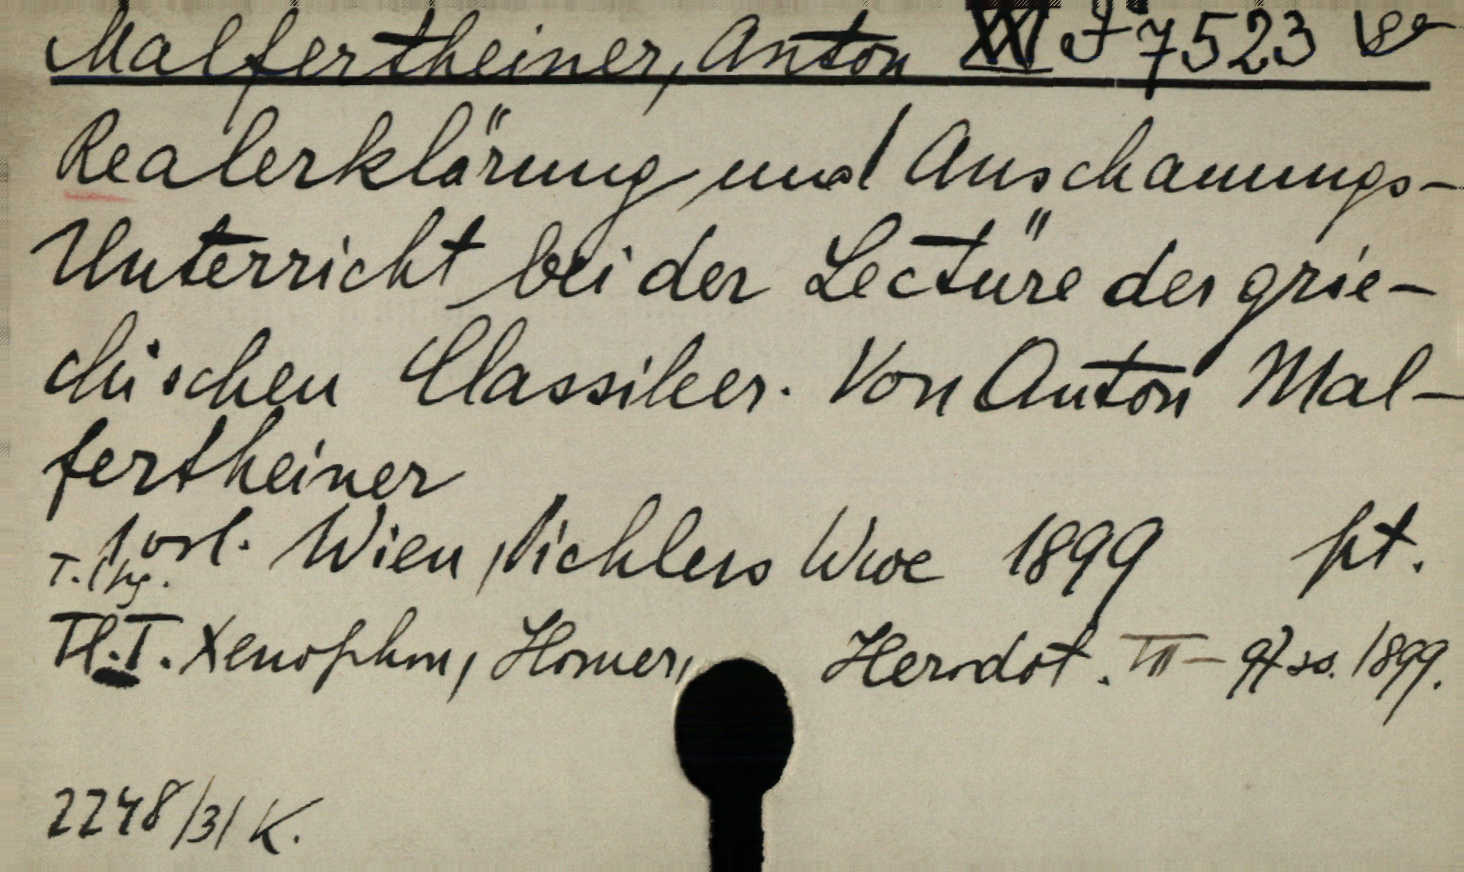 Malfertheiner, Anton XXI J 7523
Realerklärung und Anschauungs-
Unterricht bei der Lectüre der grie-
chischen Classiker. Von Anton Mal-
fertheiner
Wien, Pichlers Wwe 1899 pt.
T. I hg.
Tl. I. Xenophon, Homer, Herodot. III – 97 ss. 1899.
2248/31 K.